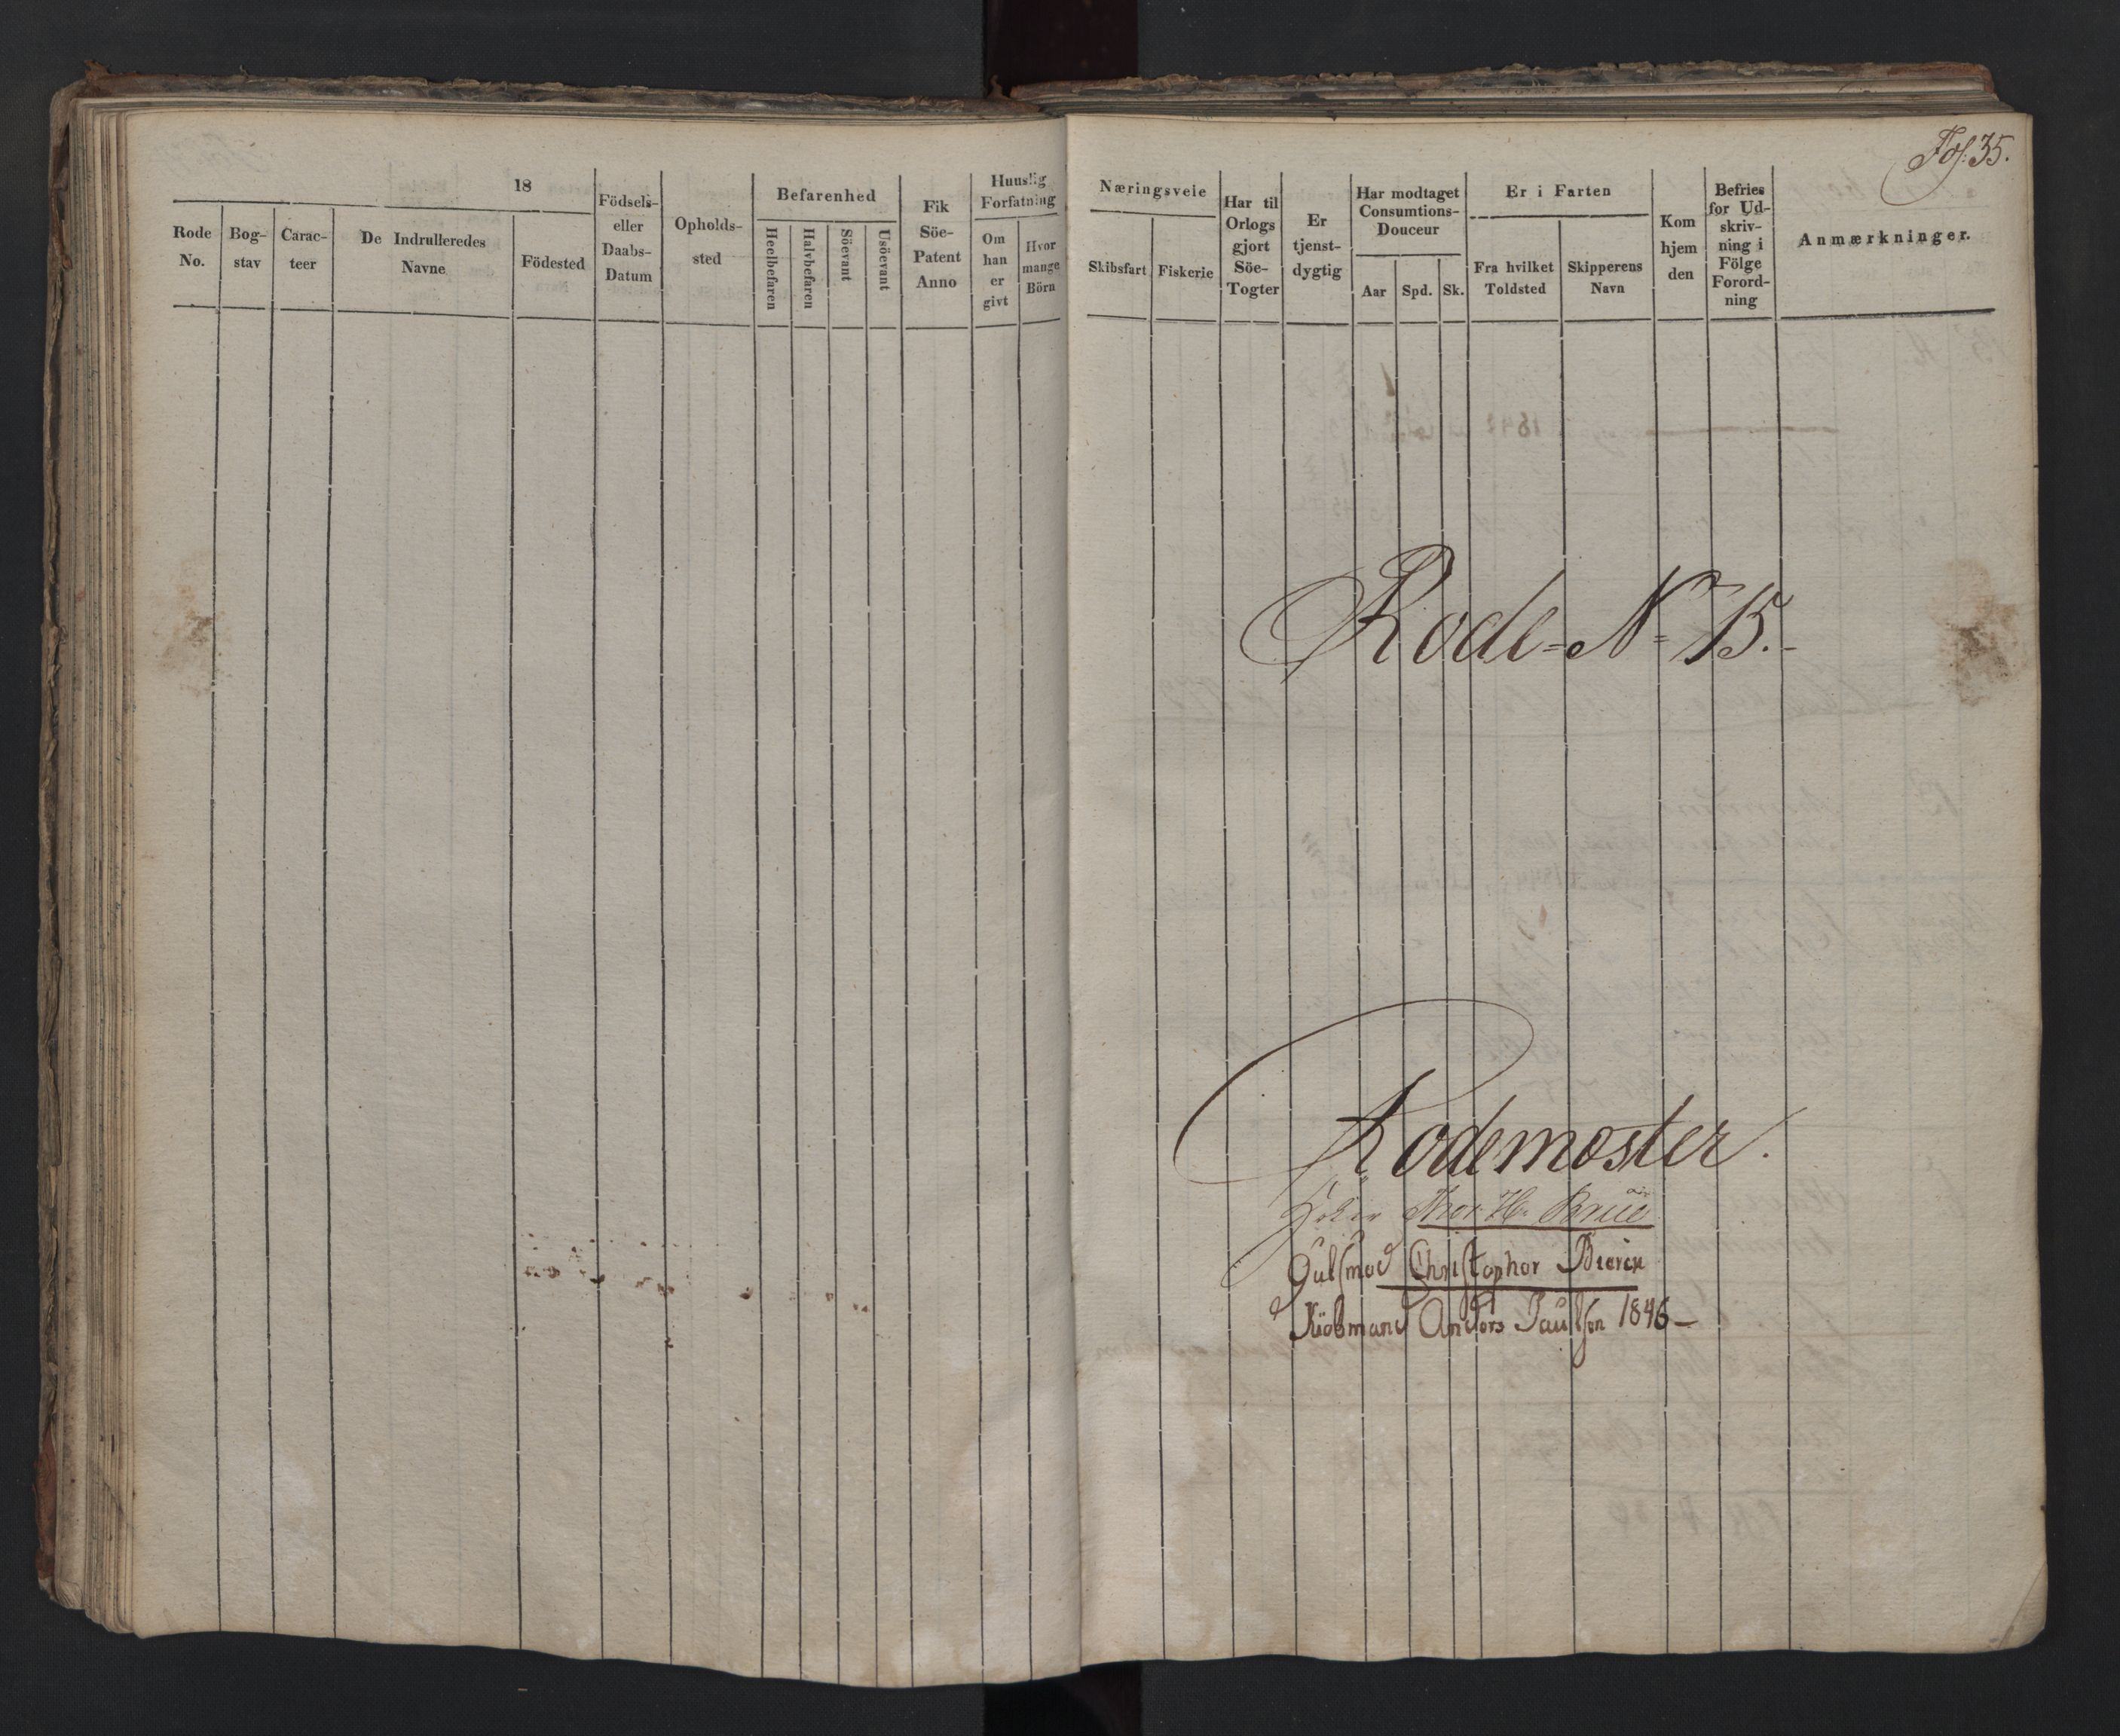 18
Rode No.
Bog- stav
Carac- teer
De Indrulleredes Navne
Födested
Födsels- eller Daabs- Datum
Opholds- sted
Befarenhed
Heelbefaren
Halvbefaren
Söevant
Usöevant
Fik Söe- Patent Anno
Huuslig Forfatning
Om han er givt
Hvor mange Börn
Fol: 35.
Næringsveie
Skibsfart
Fiskerie
Har til Orlogs gjort Söe- Togter
Er tjenst- dygtig
Har modtaget Consumtions- Douceur
Aar
Spd.
Sk.
Er i Farten
Fra hvilket Toldsted
Skipperens Navn
Kom hjem den
Befries for Ud- skriv- ning i Fölge Forord- ning
Anmærkninger.
Rode=N= 15.-
Rodemester.
Thor H. Brue
Gulsmed Christopher
Kiöbmand Anders Paulsen 1846 —